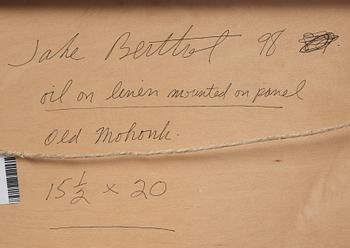 Jake Berthot 98
oil on linen mounted on panel
Old Mohonk.
15 1/2 x 20